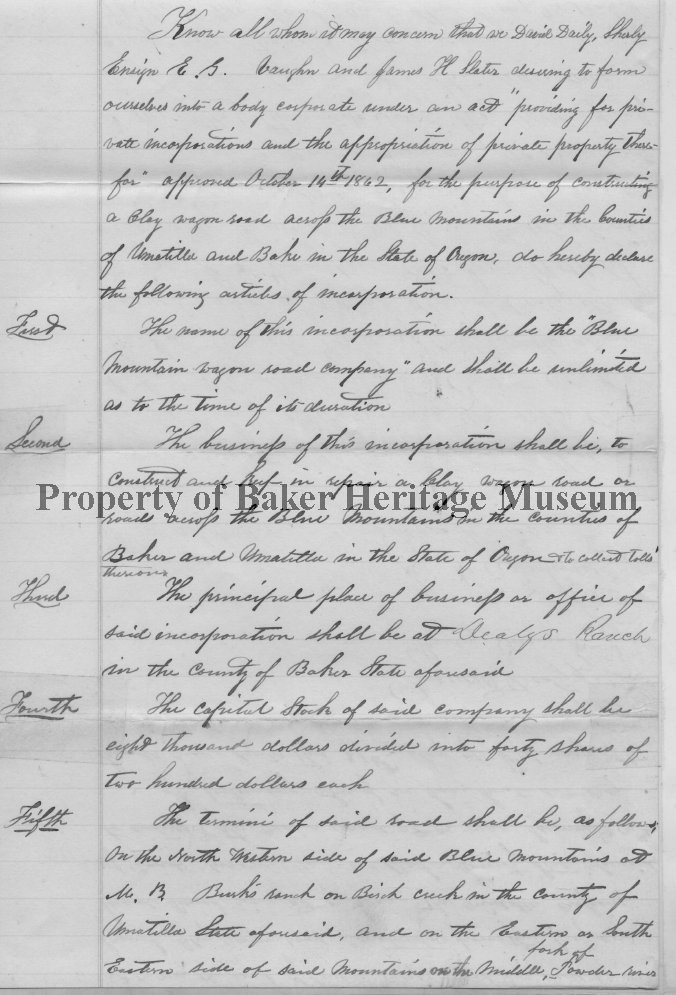 Know all whom it may concern that we David Daily, Sherly
Ensign E. G. Vaughn and James H Slater desiring to form
ourselves into a body corporate under an act "providing for pri-
vate incorporations and the appropriation of private property there-
for" approved October 14th 1862, for the purpose of constructing
a Clay wagon road across the Blue Mountains in the Counties
of Umatilla and Bake in the State of Oregon, do hereby declare
the following articles of incorporation.
First The name of this incorporation shall be the "Blue
Mountain wagon road company" and shall be unlimited
as to the time of its duration
Second The business of this incorporation shall be, to
construct and keep in repair a Clay wagon road or
Property of Baker Heritage Museum
roads across the Blue Mountains in the counties of
Baker and Umatilla in the State of Oregon & to collect tolls
thereon
Third The principal place of business or office of
said incorporation shall be at Dealys Ranch
in the county of Baker State aforesaid
Fourth The capitol Stock of said company shall be
eight thousand dollars divided into forty shares of
two hundred dollars each
Fifth The termini of said road shall be, as follows,
On the North Western side of said Blue Mountains at
M. B. Burks ranch on Birch creek in the county of
Umatilla State aforesaid, and on the Eastern or South
fork of
Eastern side of said Mountains on the Middle, Powder river